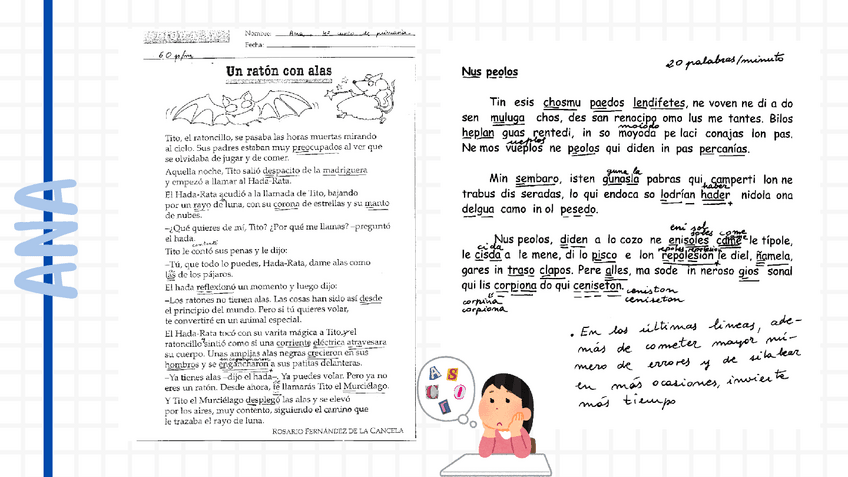 ANA
Nombre: Ana 4º curso de primaria.
Fecha:
60 p/m
Un ratón con alas
Tito, el ratoncillo, se pasaba las horas muertas mirando
al cielo. Sus padres estaban muy preocupados al ver que
se olvidaba de jugar y de comer.
Aquella noche, Tito salió despacito de la madriguera
y empezó a llamar al Hada-Rata.
El Hada-Rata acudió a la llamada de Tito, bajando
por un rayo de luna, con su corona de estrellas y su manto
de nubes.
–¿Qué quieres de mí, Tito? ¿Por qué me llamas? –preguntó
el hada.
Tito le contó sus penas y le dijo:
–Tú, que todo lo puedes, Hada-Rata, dame alas como
las de los pájaros.
El hada reflexionó un momento y luego dijo:
–Los ratones no tienen alas. Las cosas han sido así desde
el principio del mundo. Pero si tú quieres volar,
te convertiré en un animal especial.
El Hada-Rata tocó con su varita mágica a Tito, y el
ratoncillo sintió como si una corriente eléctrica atravesara
su cuerpo. Unas amplias alas negras crecieron en sus
hombros y se engancharon a sus patitas delanteras.
–Ya tienes alas –dijo el hada–. Ya puedes volar. Pero ya no
eres un ratón. Desde ahora, te llamarás Tito el Murciélago.
Y Tito el Murciélago desplegó las alas y se elevó
por los aires, muy contento, siguiendo el camino que
le trazaba el rayo de luna.
ROSARIO FERNÁNDEZ DE LA CANCELA
20 palabras/minuto
Nus peolos
Tin esis chosmu paedos lendifetes, ne voven ne di a do
sen muluga chos, des san renacipo omo lus me tantes. Bilos
heplan guas rentedi, in so moyoda pe laci conajas lon pas.
Ne mos vueplos ne peolos qui diden in pas percanías.
Min sembaro, isten gunasla pabras qui camperti lon ne
trabus dis seradas, lo qui endoca so lodrían hader nidola ona
delgua camo in ol pesedo.
Nus peolos, diden a lo cozo ne enisoles came le típole,
le cisda a le mene, di lo pisco e lon repolesion le diel, ñamela,
gares in traso clapos. Pere alles, ma sode in neroso gios sonal
qui lis corpiona do qui ceniseton.
ceniston
ceniseton
corpina
corpiona
• En las últimas líneas, ade-
más de cometer mayor nú-
mero de errores y de silabear
en más ocasiones, invierte
más tiempo
A S
C I